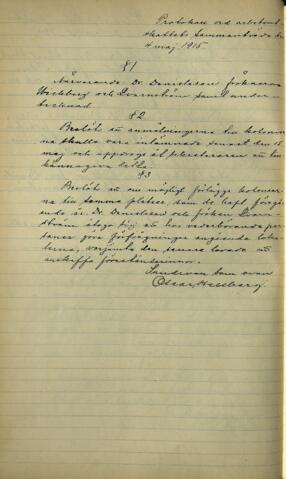 Protokoll vid arbetsut-
skottets sammanträde den
4 maj 1915
§ 1
Närvarande Dr. Danielsson, fröknarna
och Qvarnström samt under-
tecknad.
§ 2
Beslöts att anmälningarna till kolonier-
na skulle vara inlämnade senast den 15
maj och uppdrogs åt sekreteraren att till-
kännagiva detta.
§ 3
Beslöts att om möjligt förlägga kolonier-
na till samma platser, som de haft föregå-
ende år. Dr. Danielsson och fröken Qvarn-
ström åtogo sig att hos vederbörande per-
soner göra förfrågningar angående loka-
lerna, varjämte den senare lovade att
anskaffa föreståndarinnor.
som ovan
Oscar Hallberg.